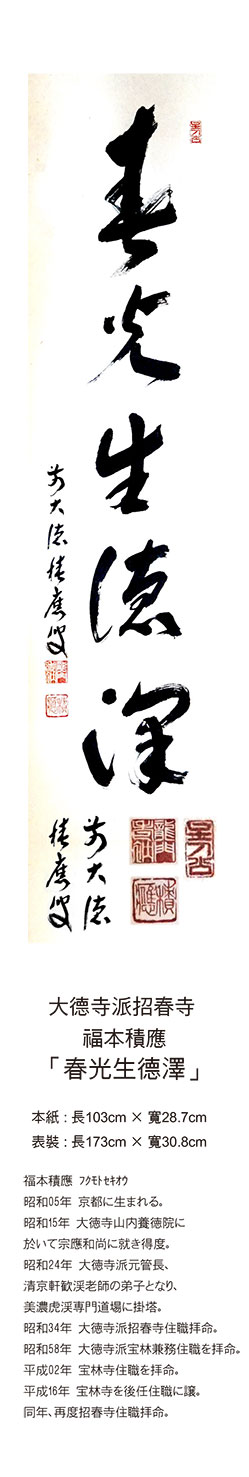 春光生德澤
前大徳積應叟
前大徳
積應叟
龍門
積應
大德寺派招春寺
福本積應
「春光生德澤」
本紙：長103cm × 寬28.7cm
表裝：長173cm × 寬30.8cm
福本積應 ﾌｸﾓﾄｾｷｵｳ
昭和05年 京都に生まれる。
昭和15年 大徳寺山内養徳院に
於いて宗應和尚に就き得度。
昭和24年 大徳寺派元管長、
清京軒歓渓老師の弟子となり、
美濃虎渓専門道場に掛塔。
昭和34年 大徳寺派招春寺住職拝命。
昭和58年 大徳寺派宝林兼務住職を拝命。
平成02年 宝林寺住職を拝命。
平成16年 宝林寺を後任住職に譲。
同年、再度招春寺住職拝命。